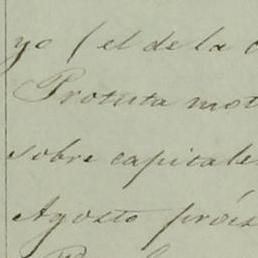 yo (el de la
Protuta mot
sobre capitale
Agosto próxi